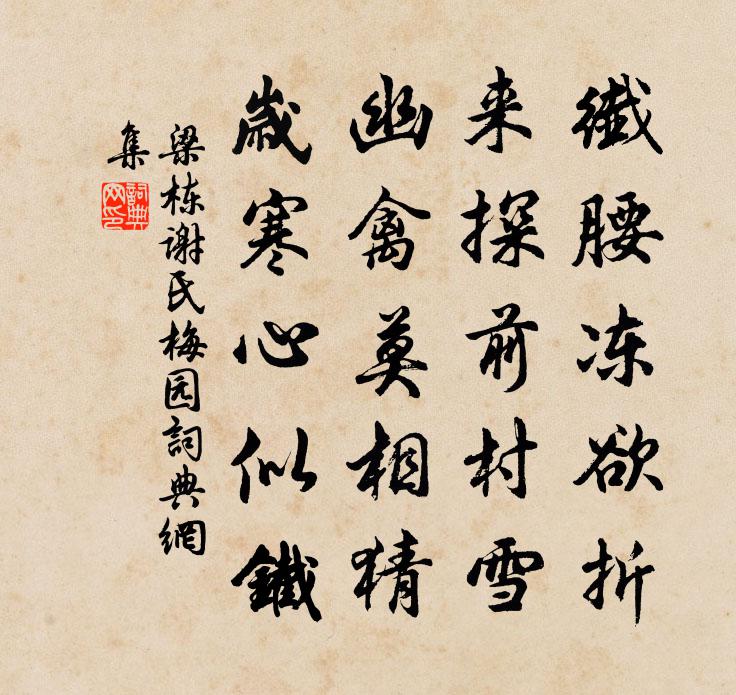 纖腰冻欲折
来探前村雪
幽禽莫相猜
歲寒心似鐵
梁栋谢氏梅园詞典網
集
詞典
网印